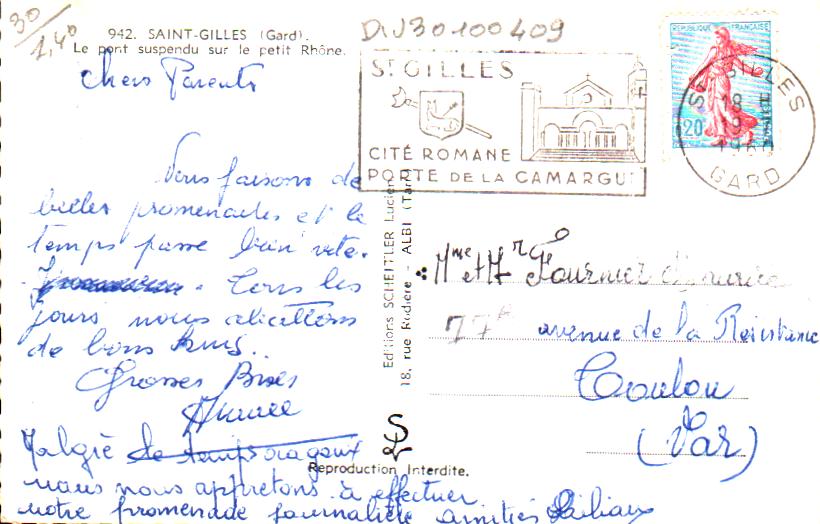 30
1,40
942. SAINT-GILLES (Gard).
Le pont suspendu sur le petit Rhône.
DIV30100409
ST GILLES
CITÉ ROMANE
PORTE DE LA CAMARGUE
REPUBLIQUE FRANÇAISE
20
ST GILLES
18
19
GARD
Chers Parents
Nous faisons de
belles promenades et le
temps passe bien vite.
Tous les
jours nous
de bons
Grosses Bises
Malgré le temps orageux
nous nous appretons à effectuer
notre promenade journalière amitiés
Editions SCHEITLER Lucien
18, rue Rudière - ALBI (Tarn)
Reproduction Interdite.
Mme et Mr Fournier Maurice
77 avenue de la Résistance
Toulon
(Var)